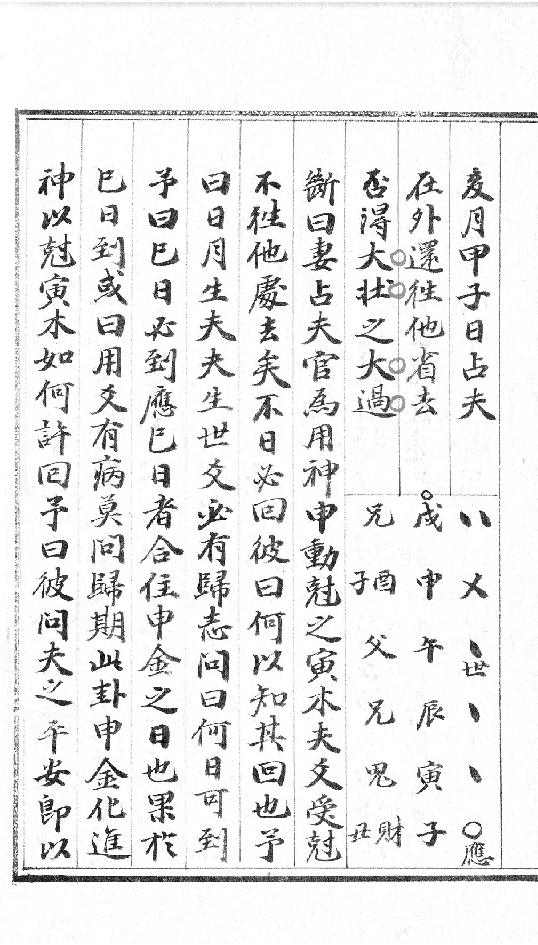 亥月甲子日占夫
在外還徃他省去
否得大壮之大過
〇應
戌申午辰寅子
兄子酉父兄鬼財丑
斷曰妻占夫官為用神申動尅之寅木夫爻受尅
不徃他處去矣不日必回彼曰何以知其回也予
曰日月生夫夫生世爻必有歸志問曰何日可到
予曰巳日必到應巳日者合住申金之日也果於
巳日到或曰用爻有病莫問歸期此卦申金化進
神以尅寅木如何許回予曰彼問夫之平安即以